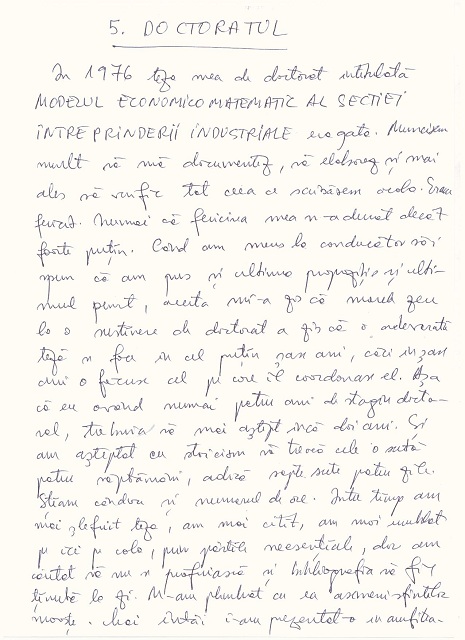 5. DOCTORATUL
In 1976 teza mea de doctorat intitulată
MODELUL ECONOMICO MATEMATIC AL SECTIEI
INTREPRINDERII INDUSTRIALE era gata. Muncisem
mult să mă documentez, să elaborez și mai
ales să verific tot ceea ce scrisesem acolo. Eram
fericit. Numai că fericirea mea n-a durat decât
foarte puțin. Când am mers la conducător să-i
spun că am pus și ultima propoziție și ulti-
mul punct, acesta mi-a zis că
la o susținere de doctorat a zis că o adevărată
teză se face in cel puțin șase ani, căci in șase
ani o făcuse cel pe care îl coordonase el. Așa
că eu având numai patru ani de stagiu docto-
ral, trebuia să mai aștept incă doi ani. Și
am așteptat cu stoicism să treacă cele o sută
patru săptămâni, adică șapte sute patru zile.
Steam cândva și numărul de ore. Intre timp am
mai șlefuit teza, am mai citit, am mai umblat
pe ici pe colo, prin părțile neesențiale, dar am
căutat să nu se prăfuiască și bibliografia să fie
ținută la zi. M-am plimbat cu ea asemeni sfintelor
moaște. Mai intâi i-am prezentat-o in amfitea-